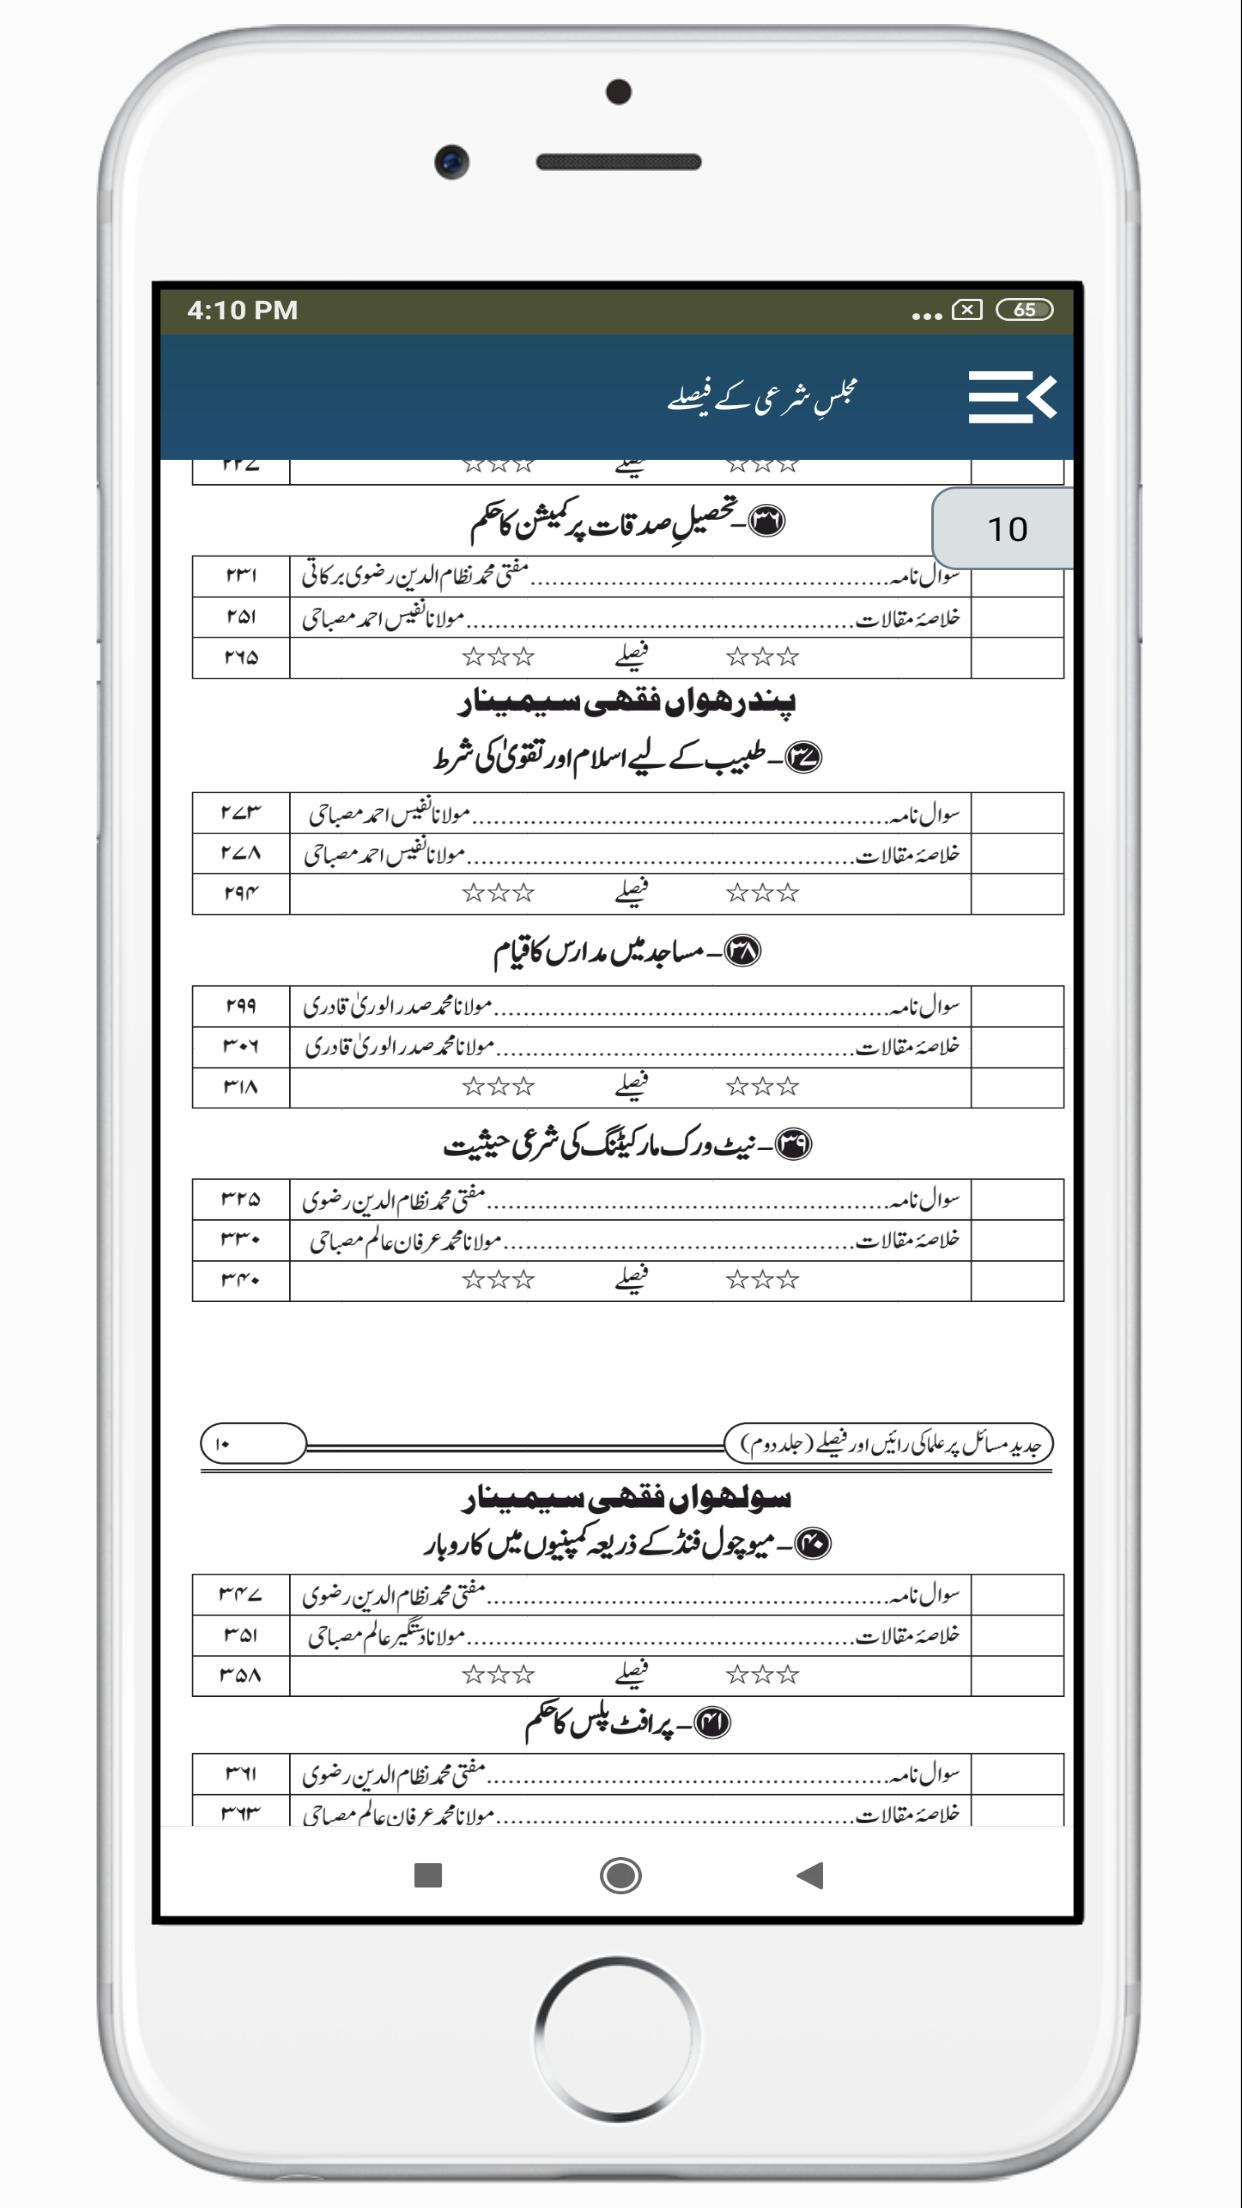 4:10 PM
65
مجلسِ شرعی کے فیصلے
☆☆☆ فیصلے ☆☆☆ ۲۲۷
10
۳۶ـ تحصیلِ صدقات پر کمیشن کا حکم
سوال نامہ مفتی محمد نظام الدین رضوی برکاتی ۲۳۱
خلاصۂ مقالات مولانا نفیس احمد مصباحی ۲۵۱
☆☆☆ فیصلے ☆☆☆ ۲۶۵
پندرھواں فقھی سیمینار
۳۷ـ طبیب کے لیے اسلام اور تقویٰ کی شرط
سوال نامہ مولانا نفیس احمد مصباحی ۲۷۳
خلاصۂ مقالات مولانا نفیس احمد مصباحی ۲۷۸
☆☆☆ فیصلے ☆☆☆ ۲۹۴
۳۸ـ مساجد میں مدارس کا قیام
سوال نامہ مولانا محمد صدر الوریٰ قادری ۲۹۹
خلاصۂ مقالات مولانا محمد صدر الوریٰ قادری ۳۰۶
☆☆☆ فیصلے ☆☆☆ ۳۱۸
۳۹ـ نیٹ ورک مارکیٹنگ کی شرعی حیثیت
سوال نامہ مفتی محمد نظام الدین رضوی ۳۲۵
خلاصۂ مقالات مولانا محمد عرفان عالم مصباحی ۳۳۰
☆☆☆ فیصلے ☆☆☆ ۳۴۰
جدید مسائل پر علما کی رائیں اور فیصلے (جلد دوم) ۱۰
سولھواں فقھی سیمینار
۴۰ـ میوچول فنڈ کے ذریعہ کمپنیوں میں کاروبار
سوال نامہ مفتی محمد نظام الدین رضوی ۳۴۷
خلاصۂ مقالات مولانا دستگیر عالم مصباحی ۳۵۱
☆☆☆ فیصلے ☆☆☆ ۳۵۸
۴۱ـ پرافٹ پلس کا حکم
سوال نامہ مفتی محمد نظام الدین رضوی ۳۶۱
خلاصۂ مقالات مولانا محمد عرفان عالم مصباحی ۳۶۳